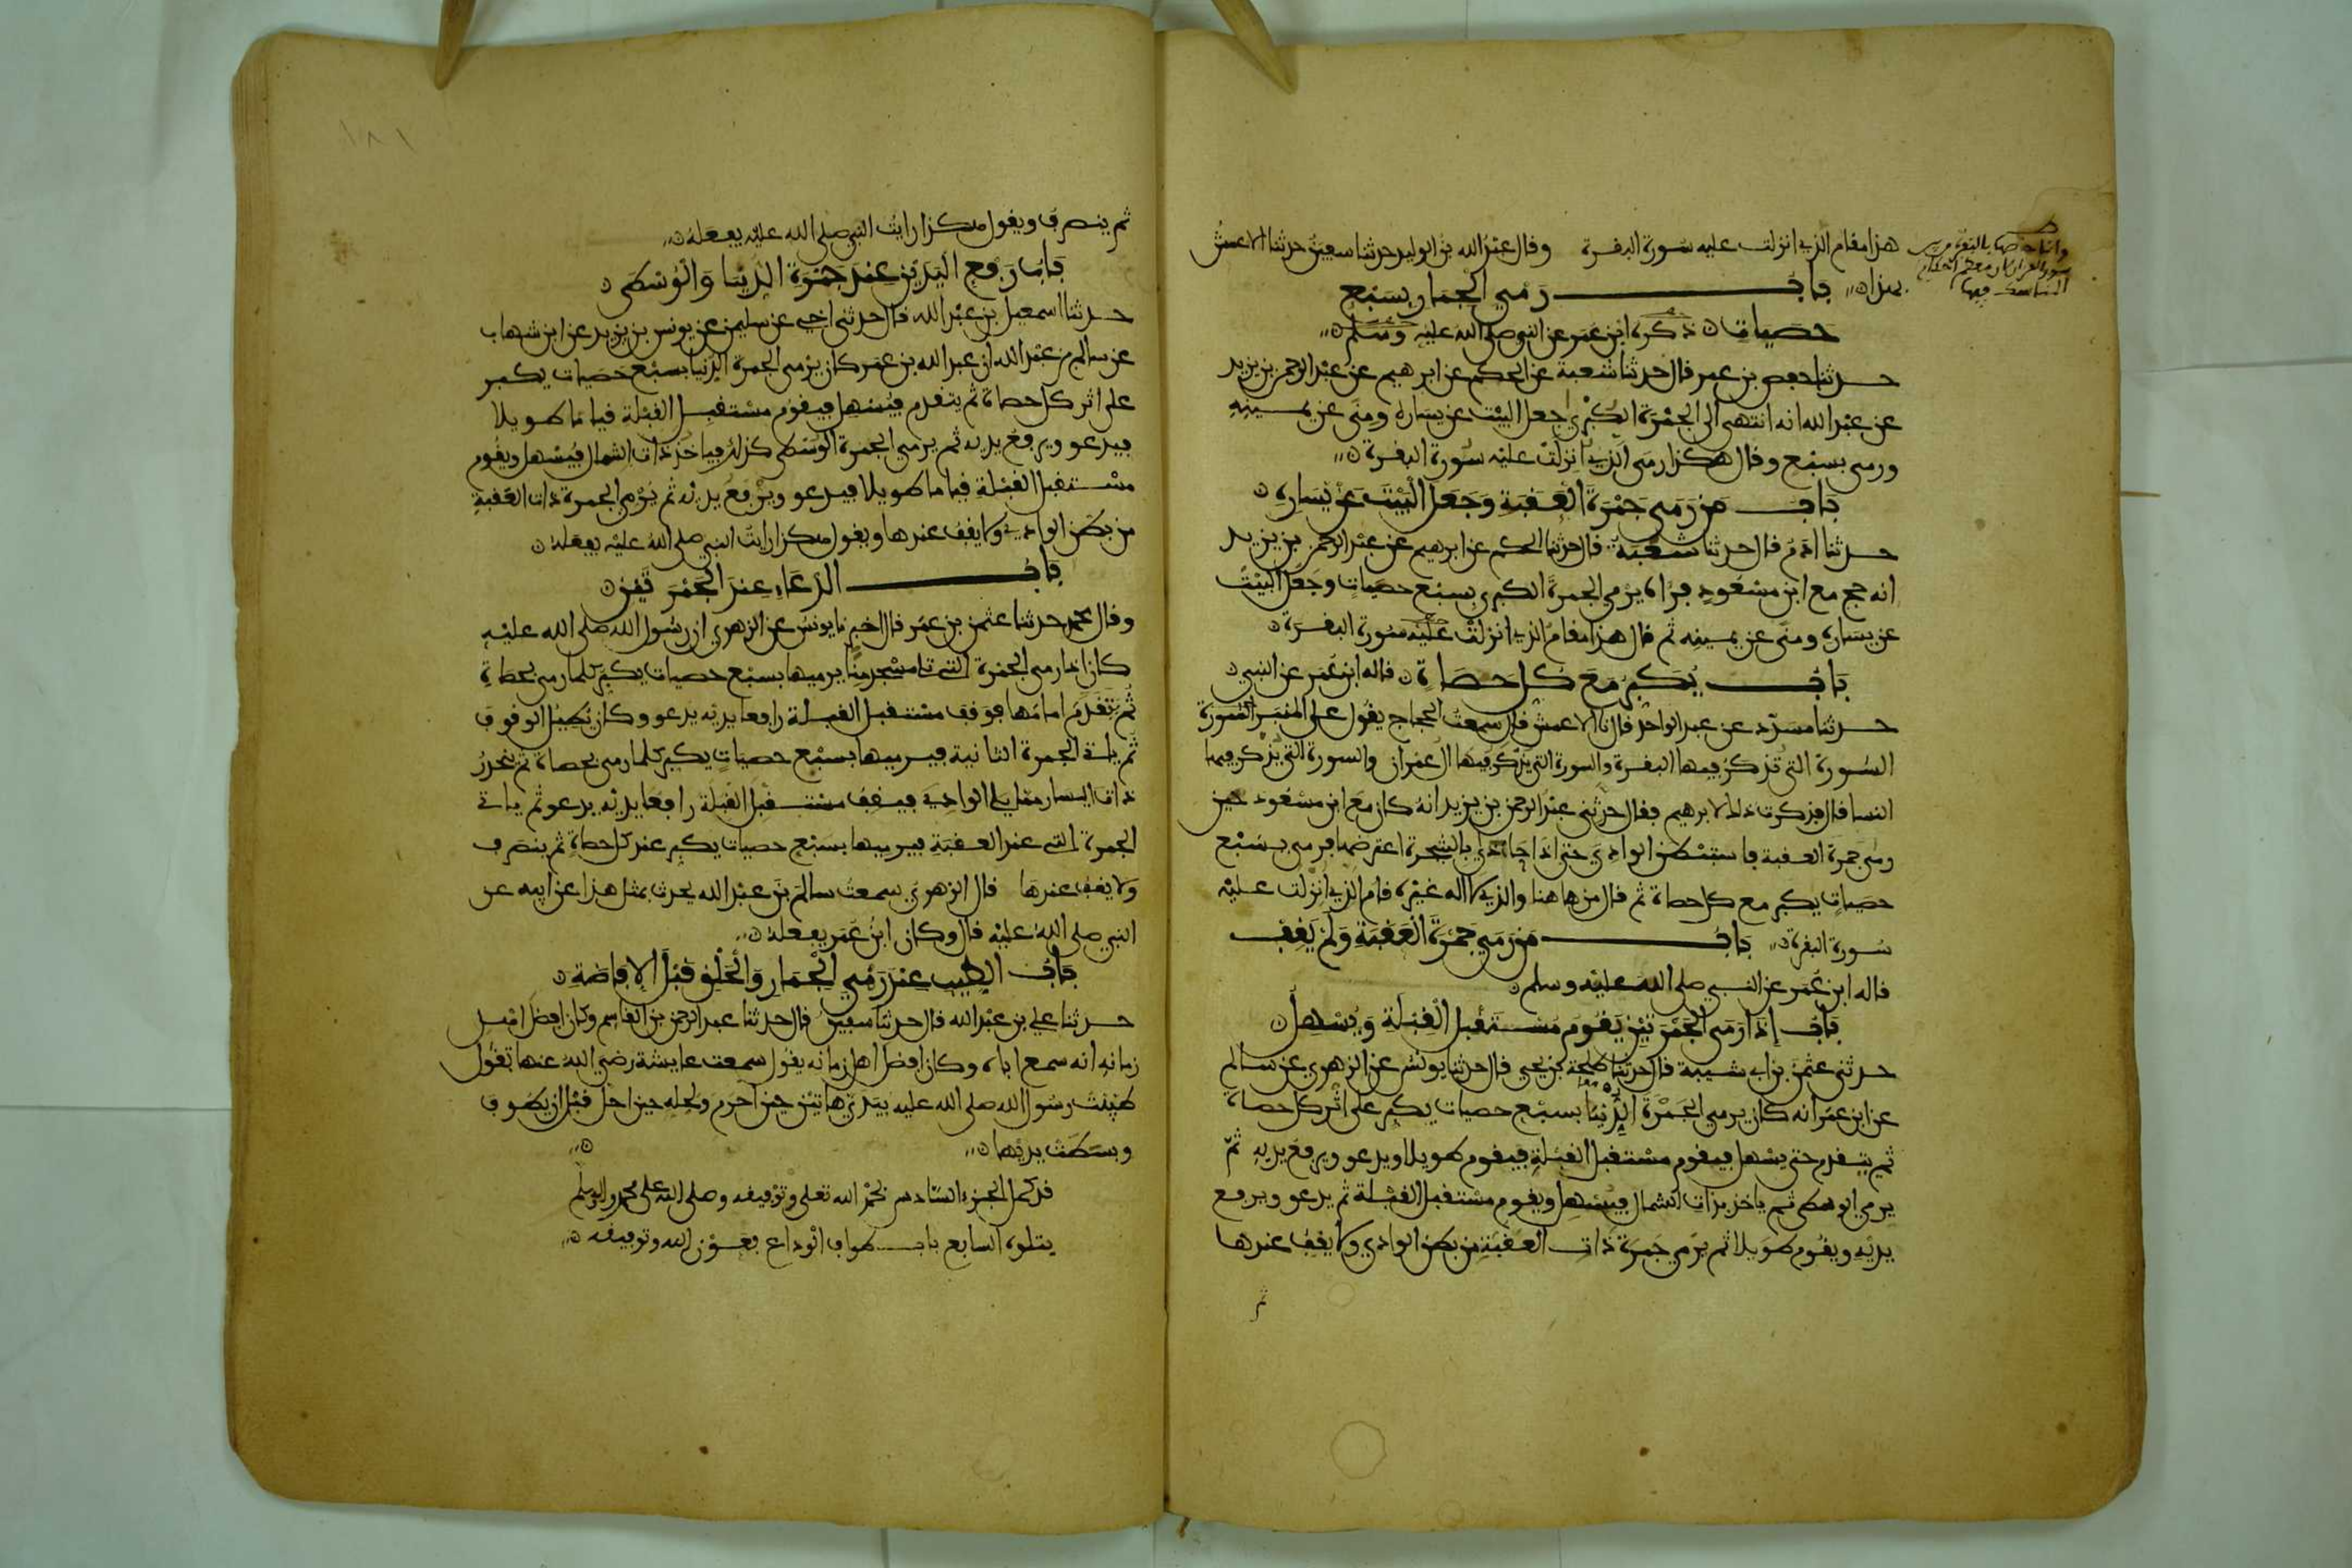 هذا مقام الذي انزلت عليه سورة البقرة وقال عبد الله بن الوليد حدثنا سفين حدثنا الاعمش
بهذا باب رمي الجمار بسبع
حصيات ذكره ابن عمر عن النبي صلى الله عليه وسلم
حدثنا حفص بن عمر قال حدثنا شعبة عن الحكم عن ابرهيم عن عبد الرحمن بن يزيد
عن عبد الله انه انتهى الى الجمرة الكبرى جعل البيت عن يساره ومنى عن يمينه
ورمى بسبع وقال هكذا رمى الذي انزلت عليه سورة البقرة
باب من رمى جمرة العقبة وجعل البيت عن يساره
حدثنا ادم قال حدثنا شعبة قال حدثنا الحكم عن ابرهيم عن عبد الرحمن بن يزيد
انه حج مع ابن مسعود فراه يرمي الجمرة الكبرى بسبع حصيات وجعل البيت
عن يساره ومنى عن يمينه ثم قال هذا مقام الذي انزلت عليه سورة البقرة
باب يكبر مع كل حصاة قاله ابن عمر عن النبي
حدثنا مسدد عن عبد الواحد قال نا الاعمش قال سمعت الحجاج يقول على المنبر
السورة التي تذكر فيها البقرة والسورة التي يذكر فيها ال عمران والسورة التي يذكر فيها
النسا قال فذكرت ذلك لابرهيم فقال حدثني عبد الرحمن بن يزيد انه كان مع ابن مسعود حين
رمى جمرة العقبة فاستبطن الوادي حتى اذا حاذى بالشجرة اعترضها فرمى بسبع
حصيات يكبر مع كل حصاة ثم قال من هاهنا والذي لا اله غيره قام الذي انزلت عليه
سورة البقرة باب من رمى جمرة العقبة ولم يقف
قاله ابن عمر عن النبي صلى الله عليه وسلم
باب إذا رمى الجمرتين يقوم مستقبل القبلة ويسهل
حدثني عثمن بن ابي شيبة قال حدثنا طلحة بن يحيى قال حدثنا يونس عن الزهري عن سالم
عن ابن عمر انه كان يرمي الجمرة الدنيا بسبع حصيات يكبر على اثر كل حصاة
ثم يتقدم حتى يسهل فيقوم مستقبل القبلة فيقوم طويلا ويدعو ويرفع يديه ثم
يرمي الوسطى ثم ياخذ بذات الشمال فيسهل ويقوم مستقبل القبلة ثم يدعو ويرفع
يديه ويقوم طويلا ثم يرمي جمرة ذات العقبة من بطن الوادي ولا يقف عندها
ثم
١٨١
ثم ينصرف ويقول هكذا رايت النبي صلى الله عليه يفعله
باب رفع اليدين عند جمرة الدنيا والوسطى
حدثنا اسمعيل بن عبد الله قال حدثني اخي عن سليمن عن يونس بن يزيد عن ابن شهاب
عن سالم بن عبد الله ان عبد الله بن عمر كان يرمي الجمرة الدنيا بسبع حصيات يكبر
على اثر كل حصاة ثم يتقدم فيسهل فيقوم مستقبل القبلة قياما طويلا
فيدعو ويرفع يديه ثم يرمي الجمرة الوسطى كذلك فياخذ ذات الشمال فيسهل ويقوم
مستقبل القبلة قياما طويلا فيدعو ويرفع يديه ثم يرمي الجمرة ذات العقبة
من بطن الوادي ولا يقف عندها ويقول هكذا رايت النبي صلى الله عليه يفعله
باب الدعاء عند الجمرتين
وقال محمد حدثنا عثمن بن عمر قال اخبرنا يونس عن الزهري ان رسول الله صلى الله عليه
كان اذا رمى الجمرة التي تلي مسجد منى يرميها بسبع حصيات يكبر كلما رمى بحصاة
ثم تقدم امامها فوقف مستقبل القبلة رافعا يديه يدعو وكان يطيل الوقوف
ثم ياتي الجمرة الثانية فيرميها بسبع حصيات يكبر كلما رمى بحصاة ثم ينحدر
ذات اليسار مما يلي الوادي فيقف مستقبل القبلة رافعا يديه يدعو ثم ياتي
الجمرة التي عند العقبة فيرميها بسبع حصيات يكبر عند كل حصاة ثم ينصرف
ولا يقف عندها قال الزهري سمعت سالم بن عبد الله يحدث بمثل هذا عن ابيه عن
النبي صلى الله عليه قال وكان ابن عمر يفعله
باب الطيب عند رمي الجمار والحلق قبل الافاضة
حدثنا علي بن عبد الله قال حدثنا سفين قال حدثنا عبد الرحمن بن القاسم وكان افضل اهل
زمانه انه سمع اباه وكان افضل اهل زمانه يقول سمعت عايشة رضي الله عنها تقول
طيبت رسول الله صلى الله عليه بيدي هاتين حين احرم ولحله حين احل قبل ان يطوف
وبسطت يديها
قد كمل الجزء السادس بحمد الله تعلى وتوفيقه وصلى الله على محمد واله وسلم
يتلوه السابع باب طواف الوداع بعون الله وتوفيقه